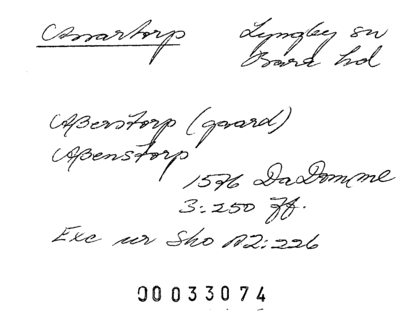 Assartorp Lyngby sn
Bara hd
Aßerstorp (gaard)
Aßenstorp
1596 DaDomme
3:250 ff.
Exc ur Sko A2:226
00033074